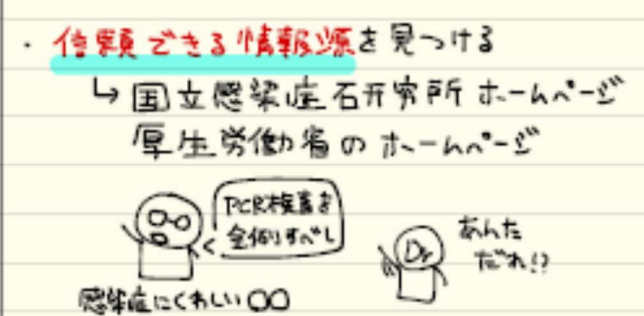 ・信頼できる情報源を見つける
↳国立感染症研究所 ホームページ
厚生労働省のホームページ
PCR検査を
全例すべし
感染症にくわしい〇〇
Dr
あんた
だれ!?